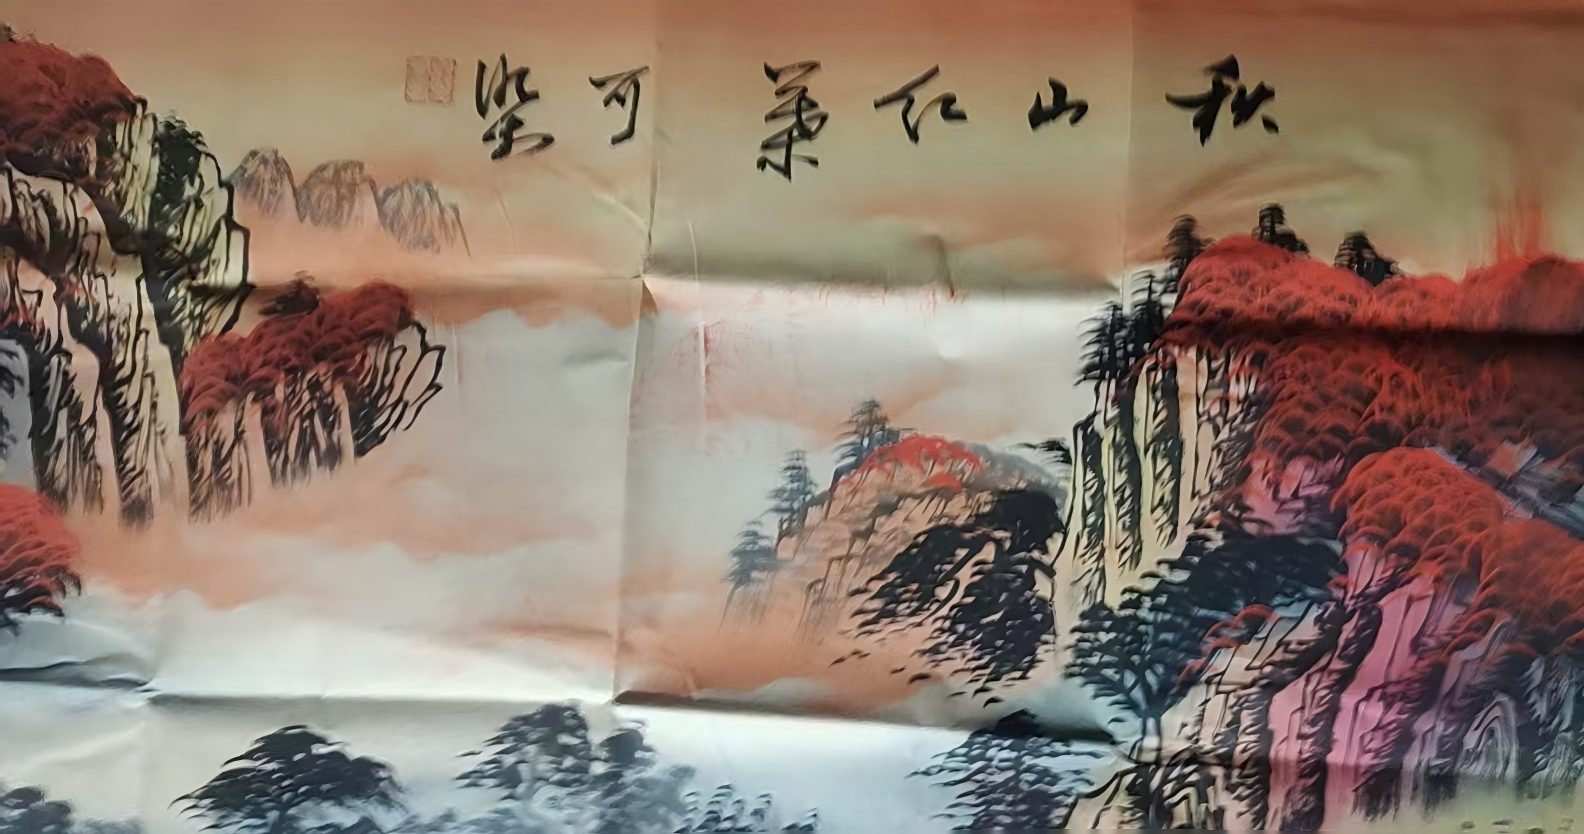 秋山红叶可染